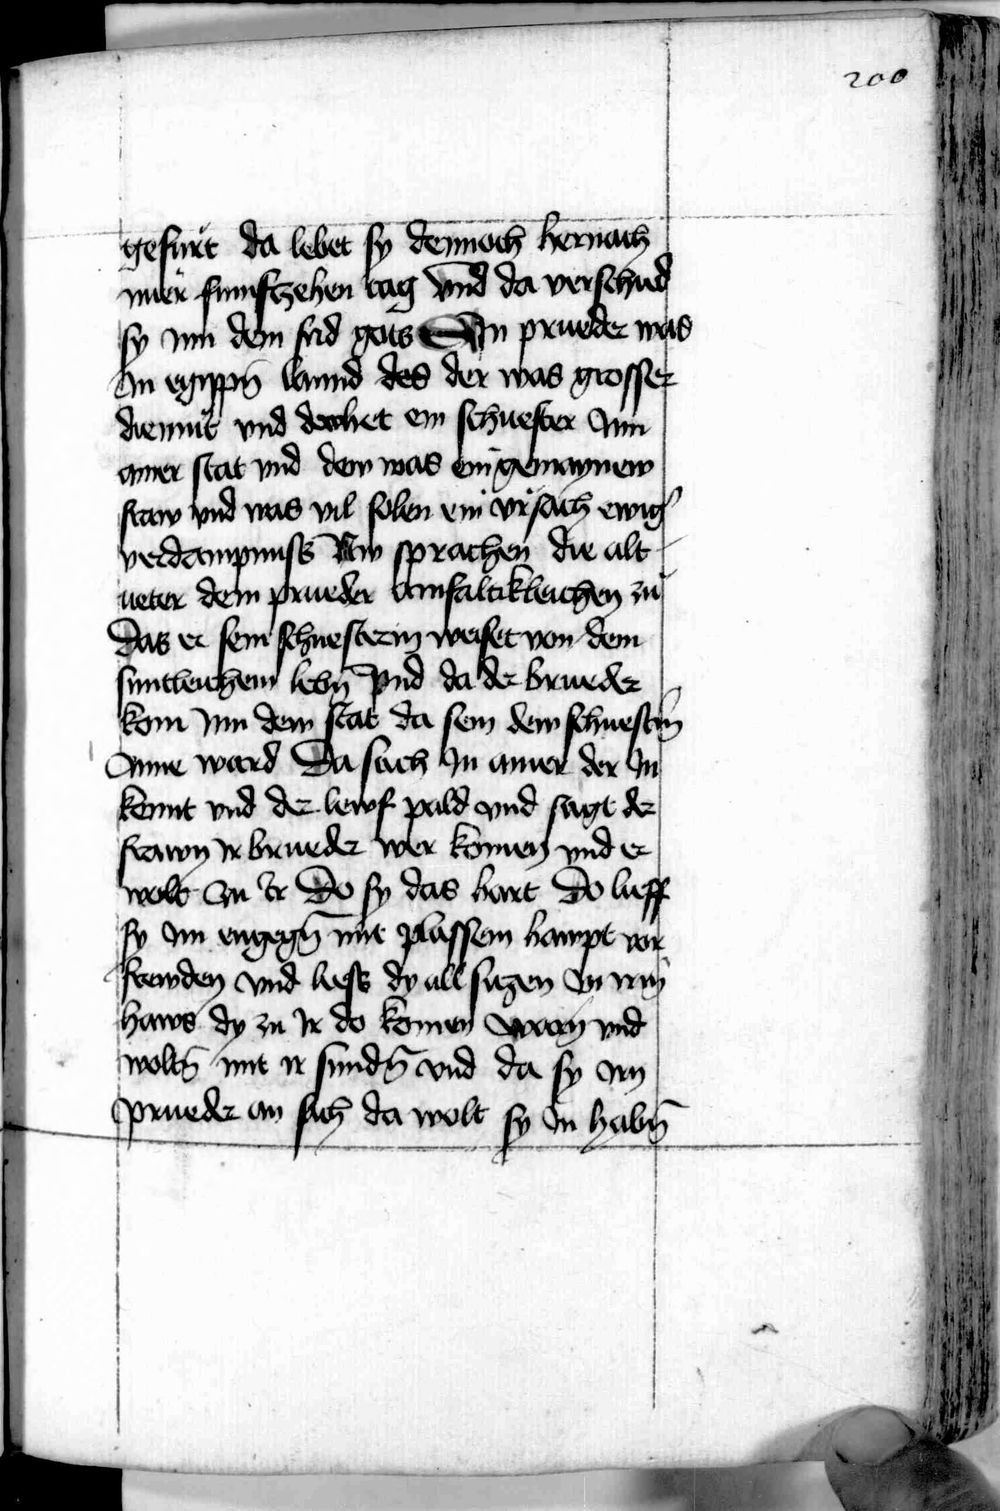 200
gefürt da lebet sy dennoch hernach
nüer funftzehen tag vnd da verschied
sy inn dem frid gots Ein prueder was
In egippñ lannd des der was grosser
diemüt vnd der het ein schuester Inn
ainer stat vnd dew was ein gemaynew
fraw vnd was vil selen ein vrsach ewig
verdampnuss Nw sprachen die alt
ueter dem prueder ainfaltikleichen zu
Das er sein schuestern weiset von dem
suntleichem lebñ Vnd da der brueder
kom inn dem stat da sein dew schuester
Inne ward Da sach In ainer der In
kennt vnd der lewf pald vnd sagt der
frawn Ir brueder wer komen vnd er
wolt zu Ir Do sy das hort Do lueff
sy im engegñ mit plassem hawpt vor
frewden vnd liess dy all sitzen In irm
haws dy zu Ir do komen warn vnd
woltñ mit ir sundñ vnd da sy irn
prueder an sach da wolt sy In habñ